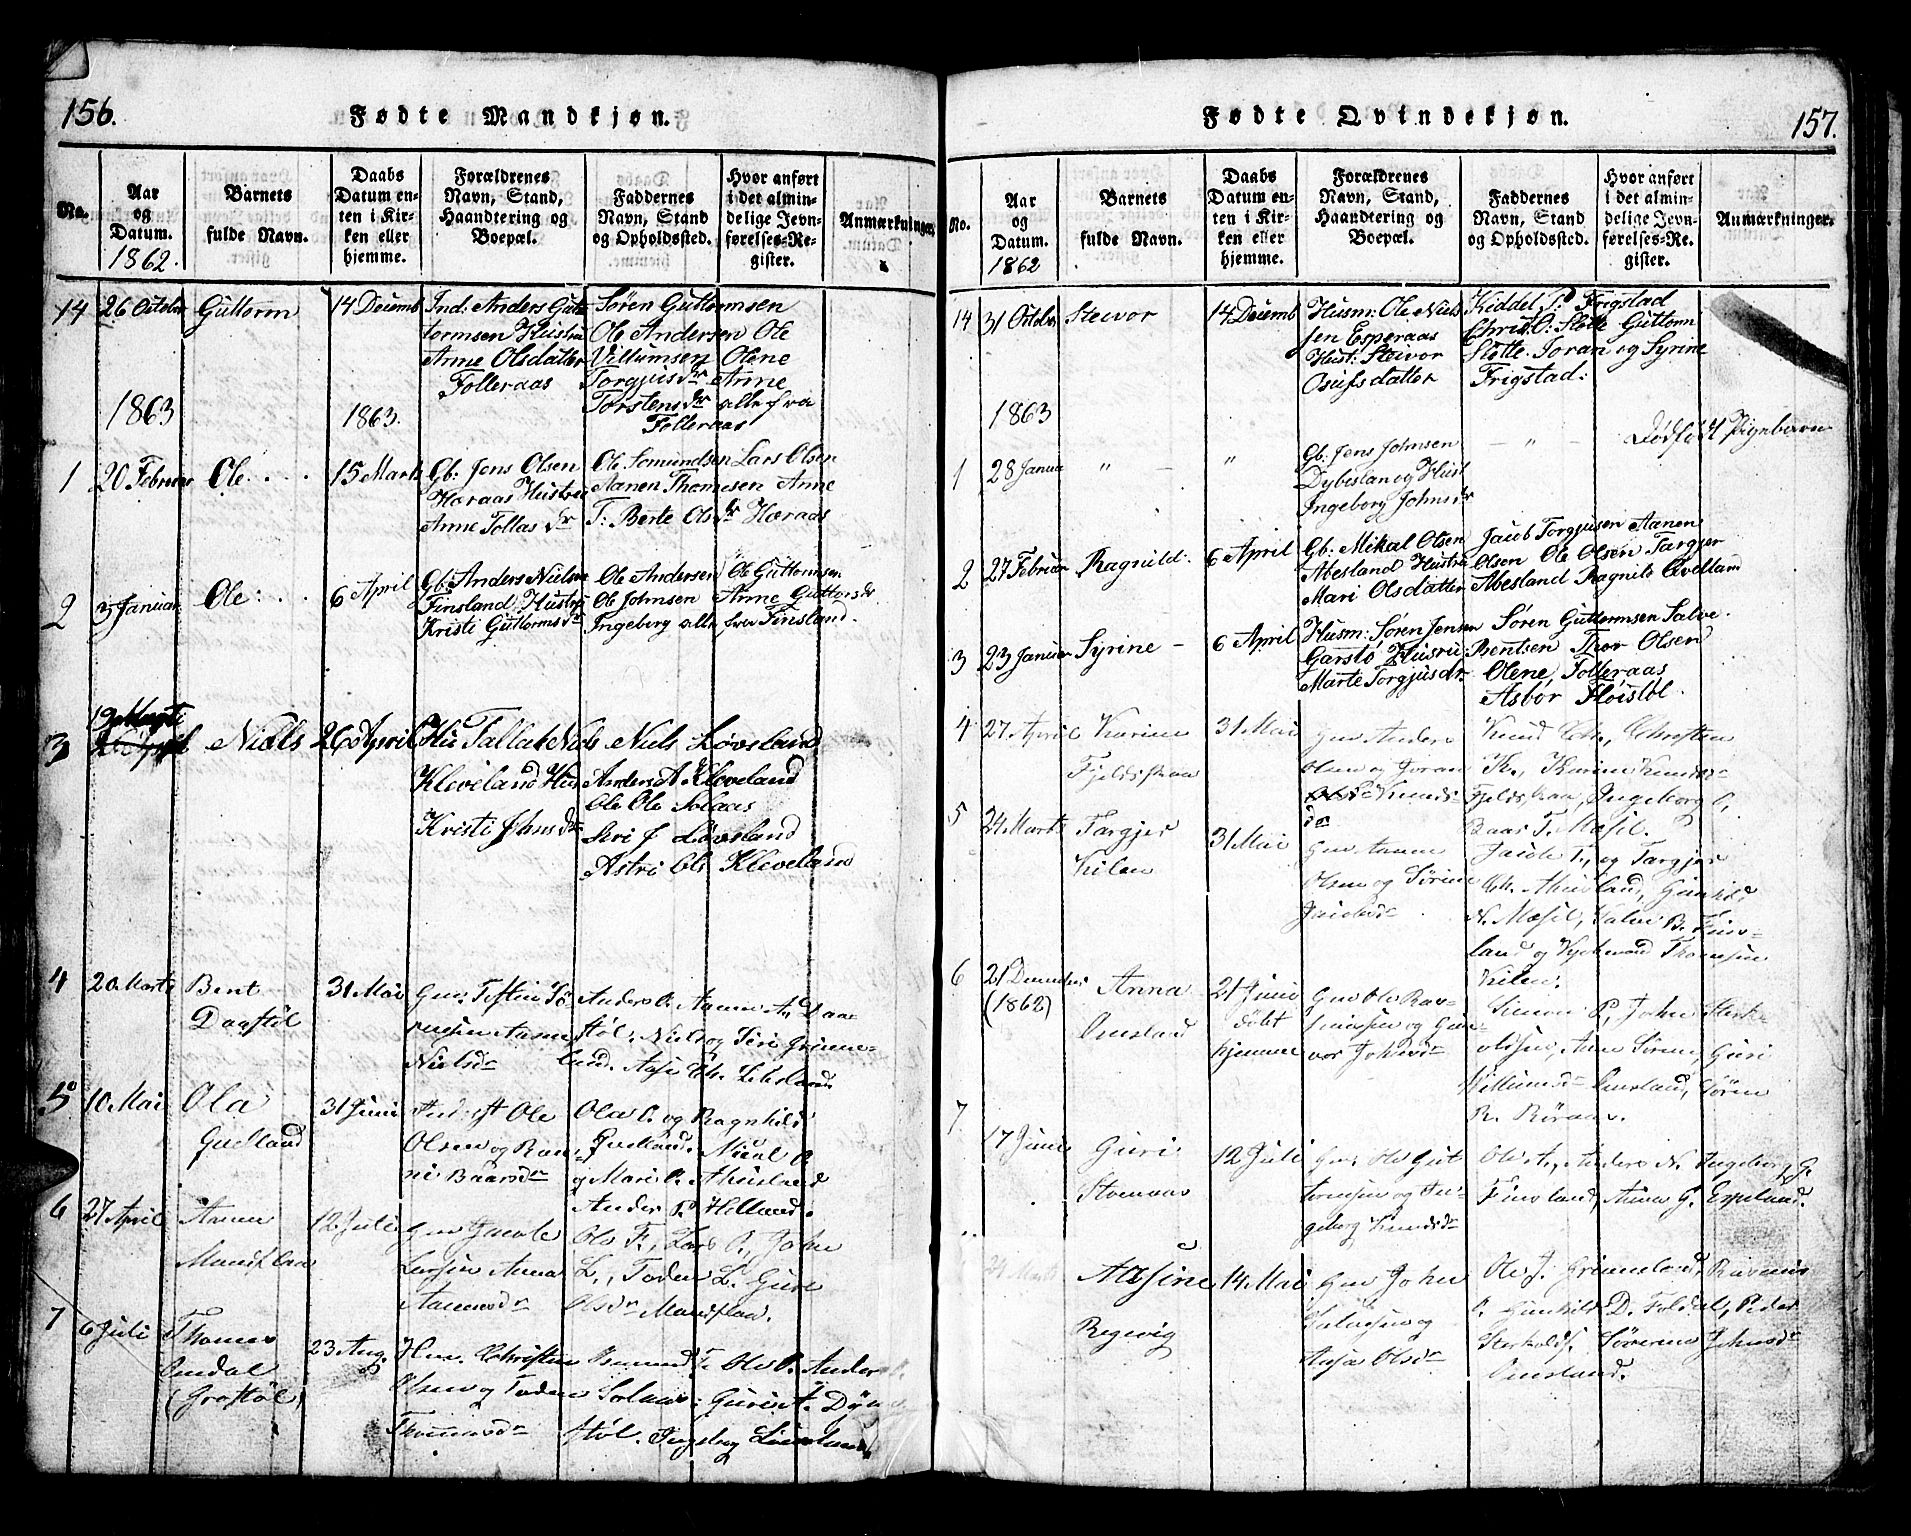 156.
Fødte Mandkjøn.
No.
Aar og Datum.
1862.
Barnets fulde Navn.
Daabs Datum enten i Kirken eller hjemme.
Forældrenes Navn, Stand, Haandtering og Boepæl.
Faddernes Navn, Stand og Opholdssted.
Hvor anført i det almindelige Jevnførelses-Register.
Anmærkninger.
14 26 Octobr Guttorm 14 Decemb
Ind: Anders Gut-
tormsen Hustru
Anne Olsdatter
Folleraas
Søren Guttormsen
Ole Andersen Ole
Villumsen Olene
Torgjusdr Anne
Torstensdr alle fra
Folleraas
1863 1863.
1 20 Februar Ole 15 Marts
Gb: Jens Olsen
Høraas Hustru
Anne Tollasdr
Ole Somundsen Lars Olsen
Aanen Thomesen Anne
T: Berte Olsdr Høraas
2 3 Januar Ole 6 April
Gb: Anders Nielsen
Finsland Hustru
Kristi Guttormsdr
Ole Andersen Ole Guttormsen
Ole Johnsen Anne Guttorsdr
Ingeborg alle fra Finsland.
3 Niels 26 April
Hu Tallak Niels
Kleveland Hus
Kristi Johnsdr
Niels Løvsland
Anders A Kleveland
Ole Ole Solaas
Siri J Løvsland
Astri Ols Kleveland
4 20 Marts Bent
Daastøl
31 Mai
Gm: Tostin Sø-
rensen Aasne
Nielsdr
Anders O. Aanen A. Daa-
støl. Niels og Siri Grimme-
land. Aase Chr. 
5 10 Mai Ola
31 Juni
Ole
Olsen og Ran-
ni Baarsdr
Ola O. og Ragnhild
og Mari O.
Anders P. Helland.
6 27 April Aanen
12 Juli
Gm Jacob
Larsen Anna
Aanensdr
Ole F., Lars O., John
L., Todne L. Guri
Olsdr Mandflaa.
7 6 Juli Thomas
Omdal
(Grostøl)
23 Aug.
Hm. Christen
Olsen og Todne
Thomasdr
Osmund T. Ole O. Anders
Solaas: Guri A.
støl. Ingeborg
157.
Fødte Qvindekjøn.
No.
Aar og Datum.
1862
Barnets fulde Navn.
Daabs Datum enten i Kirken eller hjemme.
Forældrenes Navn, Stand, Haandtering og Boepæl.
Faddernes Navn, Stand og Opholdssted.
Hvor anført i det almindelige Jevnførelses-Register.
Anmærkninger.
14 31 Octobr Steivor 14 Decemb
Husm: Ole Niel-
sen Esperaas
Hust: Steivor
Osufsdatter
Kiddel P: Frigstad
Christ. O: Slotte Guttorm
Slotte Joran og Syrine
Frigstad:
1863
1 28 Januar " — "
Gb: Jens Johnsen
Dybesland og Hust
Ingeborg Johnsdr
— " —
Dødfødt Pigebarn
2 27 Februar Ragnild. 6 April
Gb: Mikal Olsen
Abesland Hustru
Mari Olsdatter
Jacob Torgjusen Aanen
Olsen Ole Olsen Targjer
Abesland Ragnild Qvelland
3 23 Januar Syrine — 6 April
Husm: Søren Jensen
Garstø Husru
Marte Torgjusdr.
Søren Guttormsen Salve
Bentsen Thor Olsen
Olene Folleraas
Asbør Høistøl.
4 27 April Karine
31 Mai
Gm Anders
Olsen og Joran
Knuds-
dr
Knud Chr., Christen
K., Karine Knudsdr
Ingeborg O.
Baas T. Mæsel.
5 24 Marts Targjer
Kilen
31 Mai
Gm Aanen
Olsen og Sørine
Jacobsdr
Jacob T., og Targjer
Chr. Gunhild
N. Mæsel, Salve B. Fins-
land og Thomsen
Kilen.
6 21 December
(1862)
Anna
Omsland
21 Juni
døbt
hjemme
Gm Ole Ras-
mussen og Gun-
vor Johnsdr
Simon P., John Sterk-
oldsen, Anne Sørens, Guri
Villumsdr Omsland, Søren
R. Røraas.
7
17 Juni Guri
12 Juli
Gm. Ole Gut-
tormsen og In-
geborg Knudsdr
Ole A., Anders N. Ingeborg G.
Finsland, Anna G. Espeland.
24 Marts Aasine
Regevig
14 Mai
Gm John
Salvesen og
Aasa Olsdr
Ole J. Grimeland, Rasmus
P. Gunhild D. Foldal, Peder
Sterkolds. Sørine Johnsdr
Omsland.